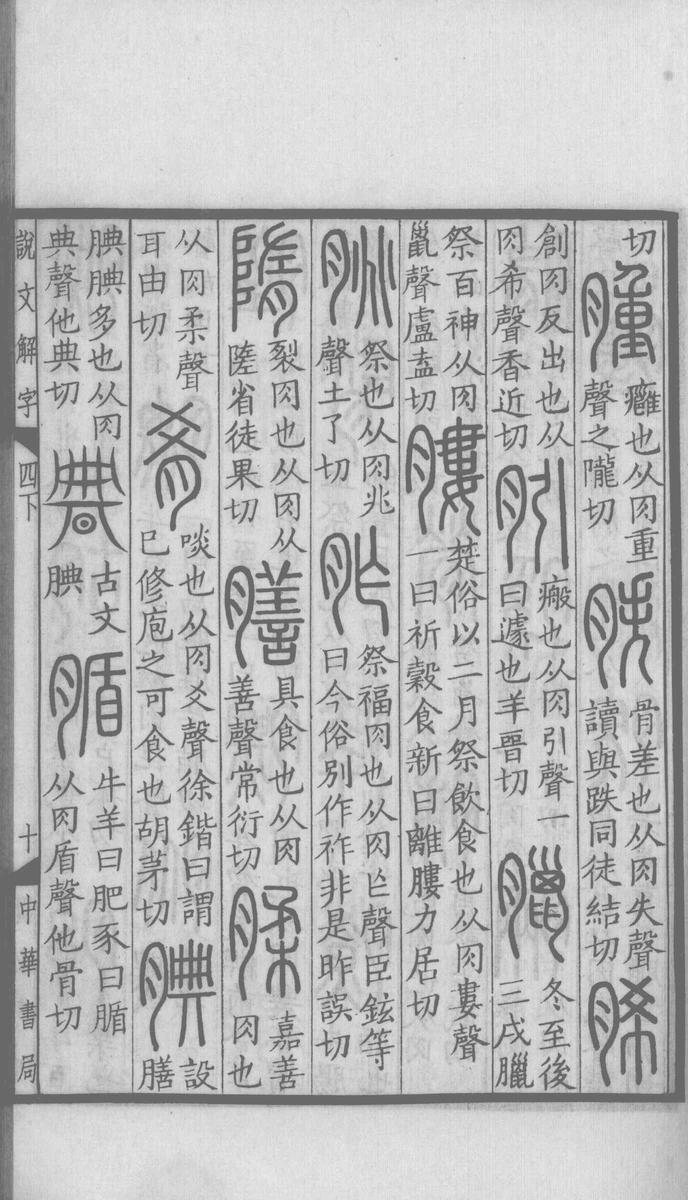 切
腫癰也从肉重聲之隴切胅骨差也从肉失聲讀與跌同徒結切脪
創肉反出也从肉希聲香近切䏖瘢也从肉引聲一曰遽也羊晋切臘冬至後三戌臘
祭百神从肉巤聲盧盍切膢楚俗以二月祭飲食也从肉婁聲一曰祈穀食新曰離膢力居切
朓祭也从肉兆聲土了切胙祭福肉也从肉乍聲臣鉉等曰今俗別作祚非是昨誤切
隋裂肉也从肉从隓省徒果切膳具食也从肉善聲常衍切腬嘉善肉也
从肉柔聲耳由切肴啖也从肉爻聲徐鍇曰謂已修庖之可食也胡茅切腆設膳
腆腆多也从肉典聲他典切𠔏古文腆腯牛羊曰肥豕曰腯从肉盾聲他骨切
說文解字 四下 十 中華書局